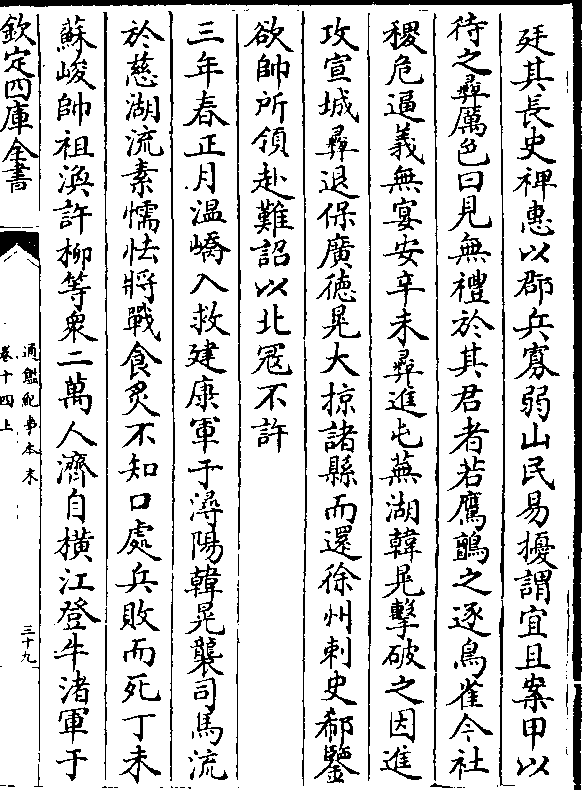 廷其長史裨惠以郡兵寡弱山民易擾謂宜且案甲以
待之彛厲色曰見無禮於其君者若鷹鸇之逐鳥雀今社
稷危逼義無宴安辛未彛進屯蕪湖韓晃擊破之因進
攻宣城彛退保廣徳晃大掠諸縣而還徐州刺史郗鑒
欲帥所領赴難詔以北冦不許
三年春正月温嶠入救建康軍于潯陽韓晃襲司馬流
於慈湖流素懦怯將戰食炙不知口處兵敗而死丁未
蘇峻帥祖渙許柳等衆二萬人濟自横江登牛渚軍于
欽定四庫全書
通鑑紀事本末
卷十四上
三十九